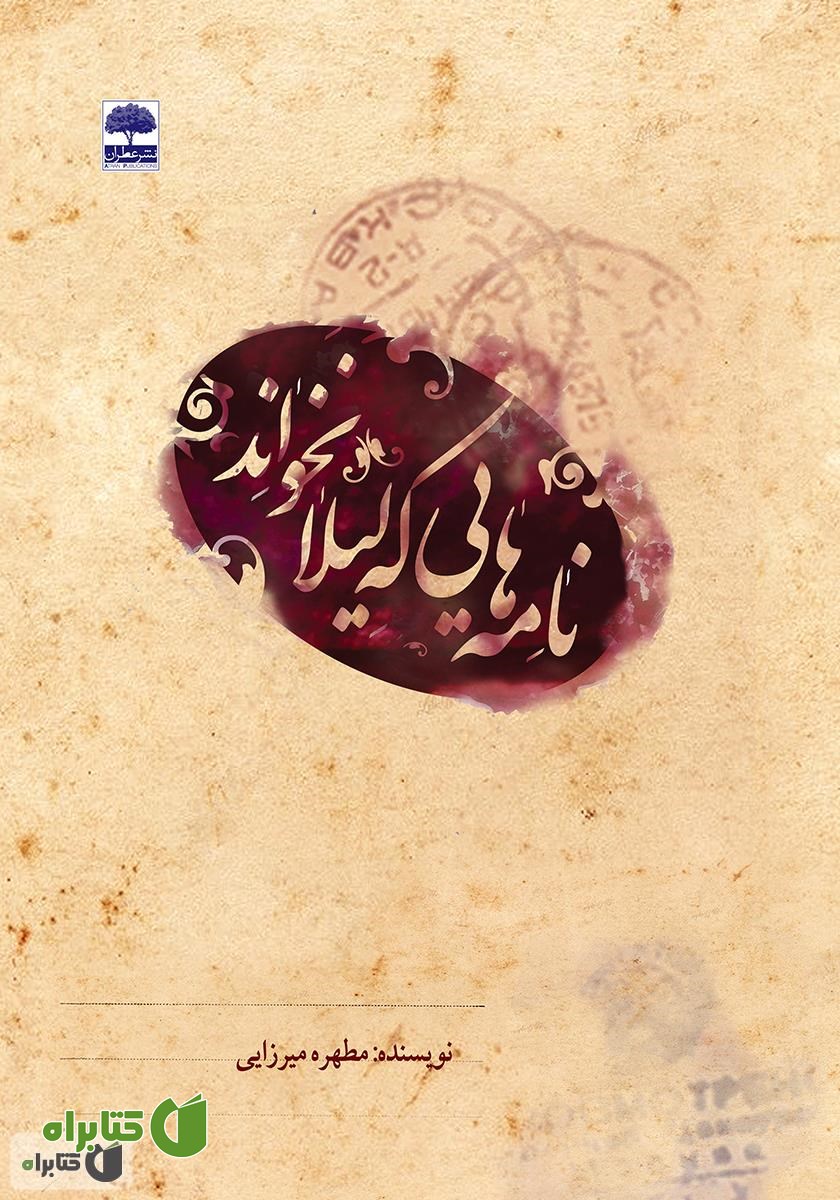 نشر عطران
ATRAN PUBLICATIONS
نامه‌هایی که لیلا نخواند
نویسنده: مطهره میرزایی
کتابراه
کتابراه